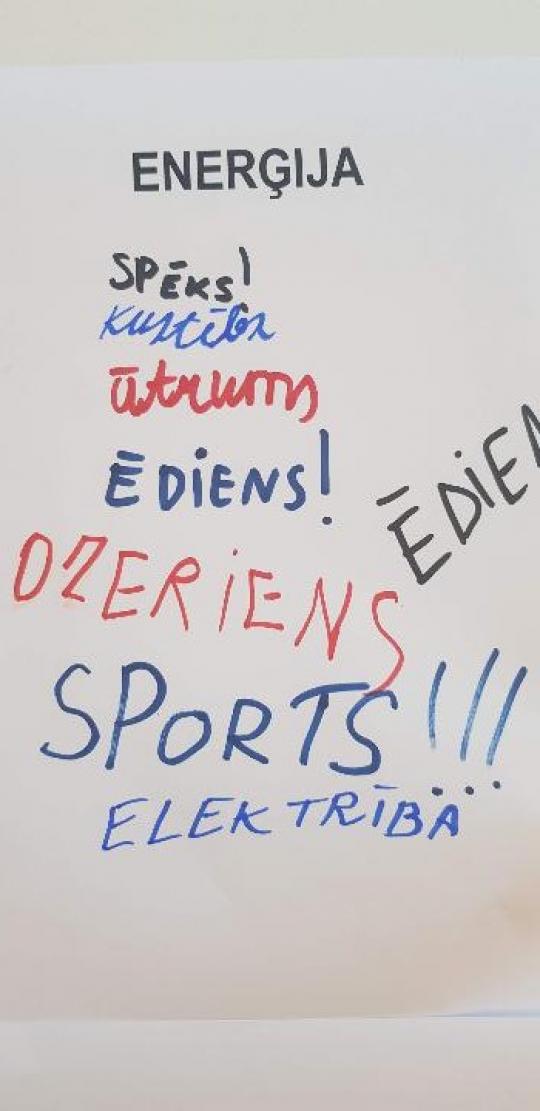 ENERĢIJA
SPĒKS!
Kustība
ūtrums
ĒDIENS!
ĒDIEN
DZERIENS
SPORTS!!!
ELEKTRĪBA